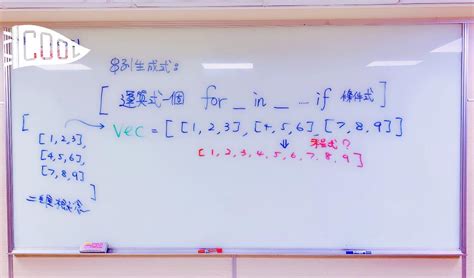 COOL
串列生成式：
[ 運算式一個 for _ in _ … if 條件式 ]
vec = [ [1, 2, 3], [4, 5, 6], [7, 8, 9] ]
⇓ 程式？
[ 1, 2, 3, 4, 5, 6, 7, 8, 9 ]
[
[1, 2, 3],
[4, 5, 6],
[7, 8, 9]
]